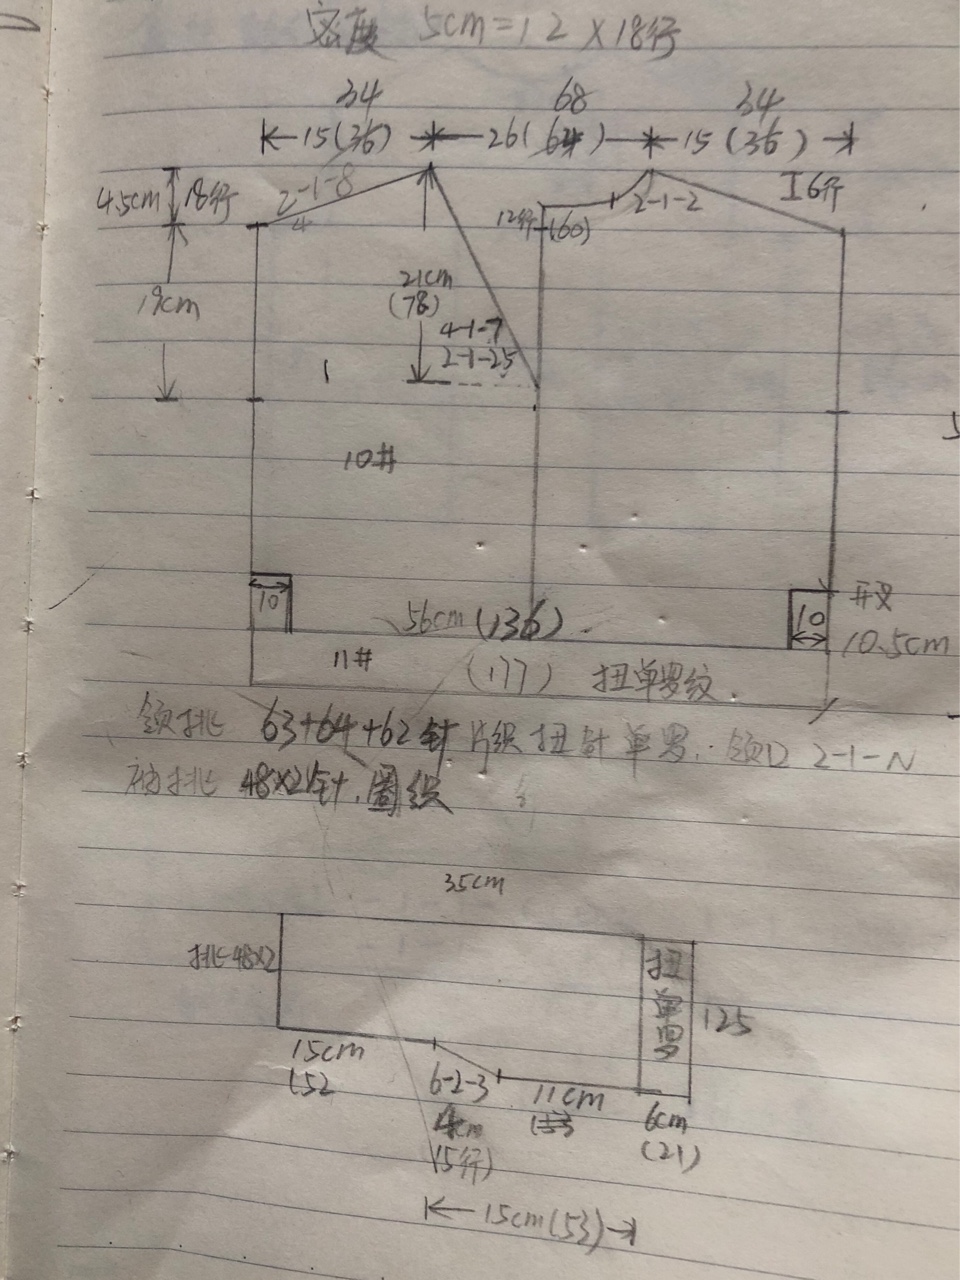 密度 5cm=12×18行
34 68 34
15(36) 26(64) 15(36)
4.5cm 18行 2-1-8 2-1-2 16行
4 12行 (60)
19cm 21cm
(78)
4-1-7
2-1-25
10#
10 10 开叉
56cm (136) 10.5cm
11# (177) 扭单罗纹
领挑 63+64+62针 片织扭针单罗. 领口 2-1-N
袖挑 48×2针. 圈织
35cm
挑48×2 扭单罗 125
15cm 6-2-3 11cm 6cm
(52 4cm (21)
(5行)
15cm(53)